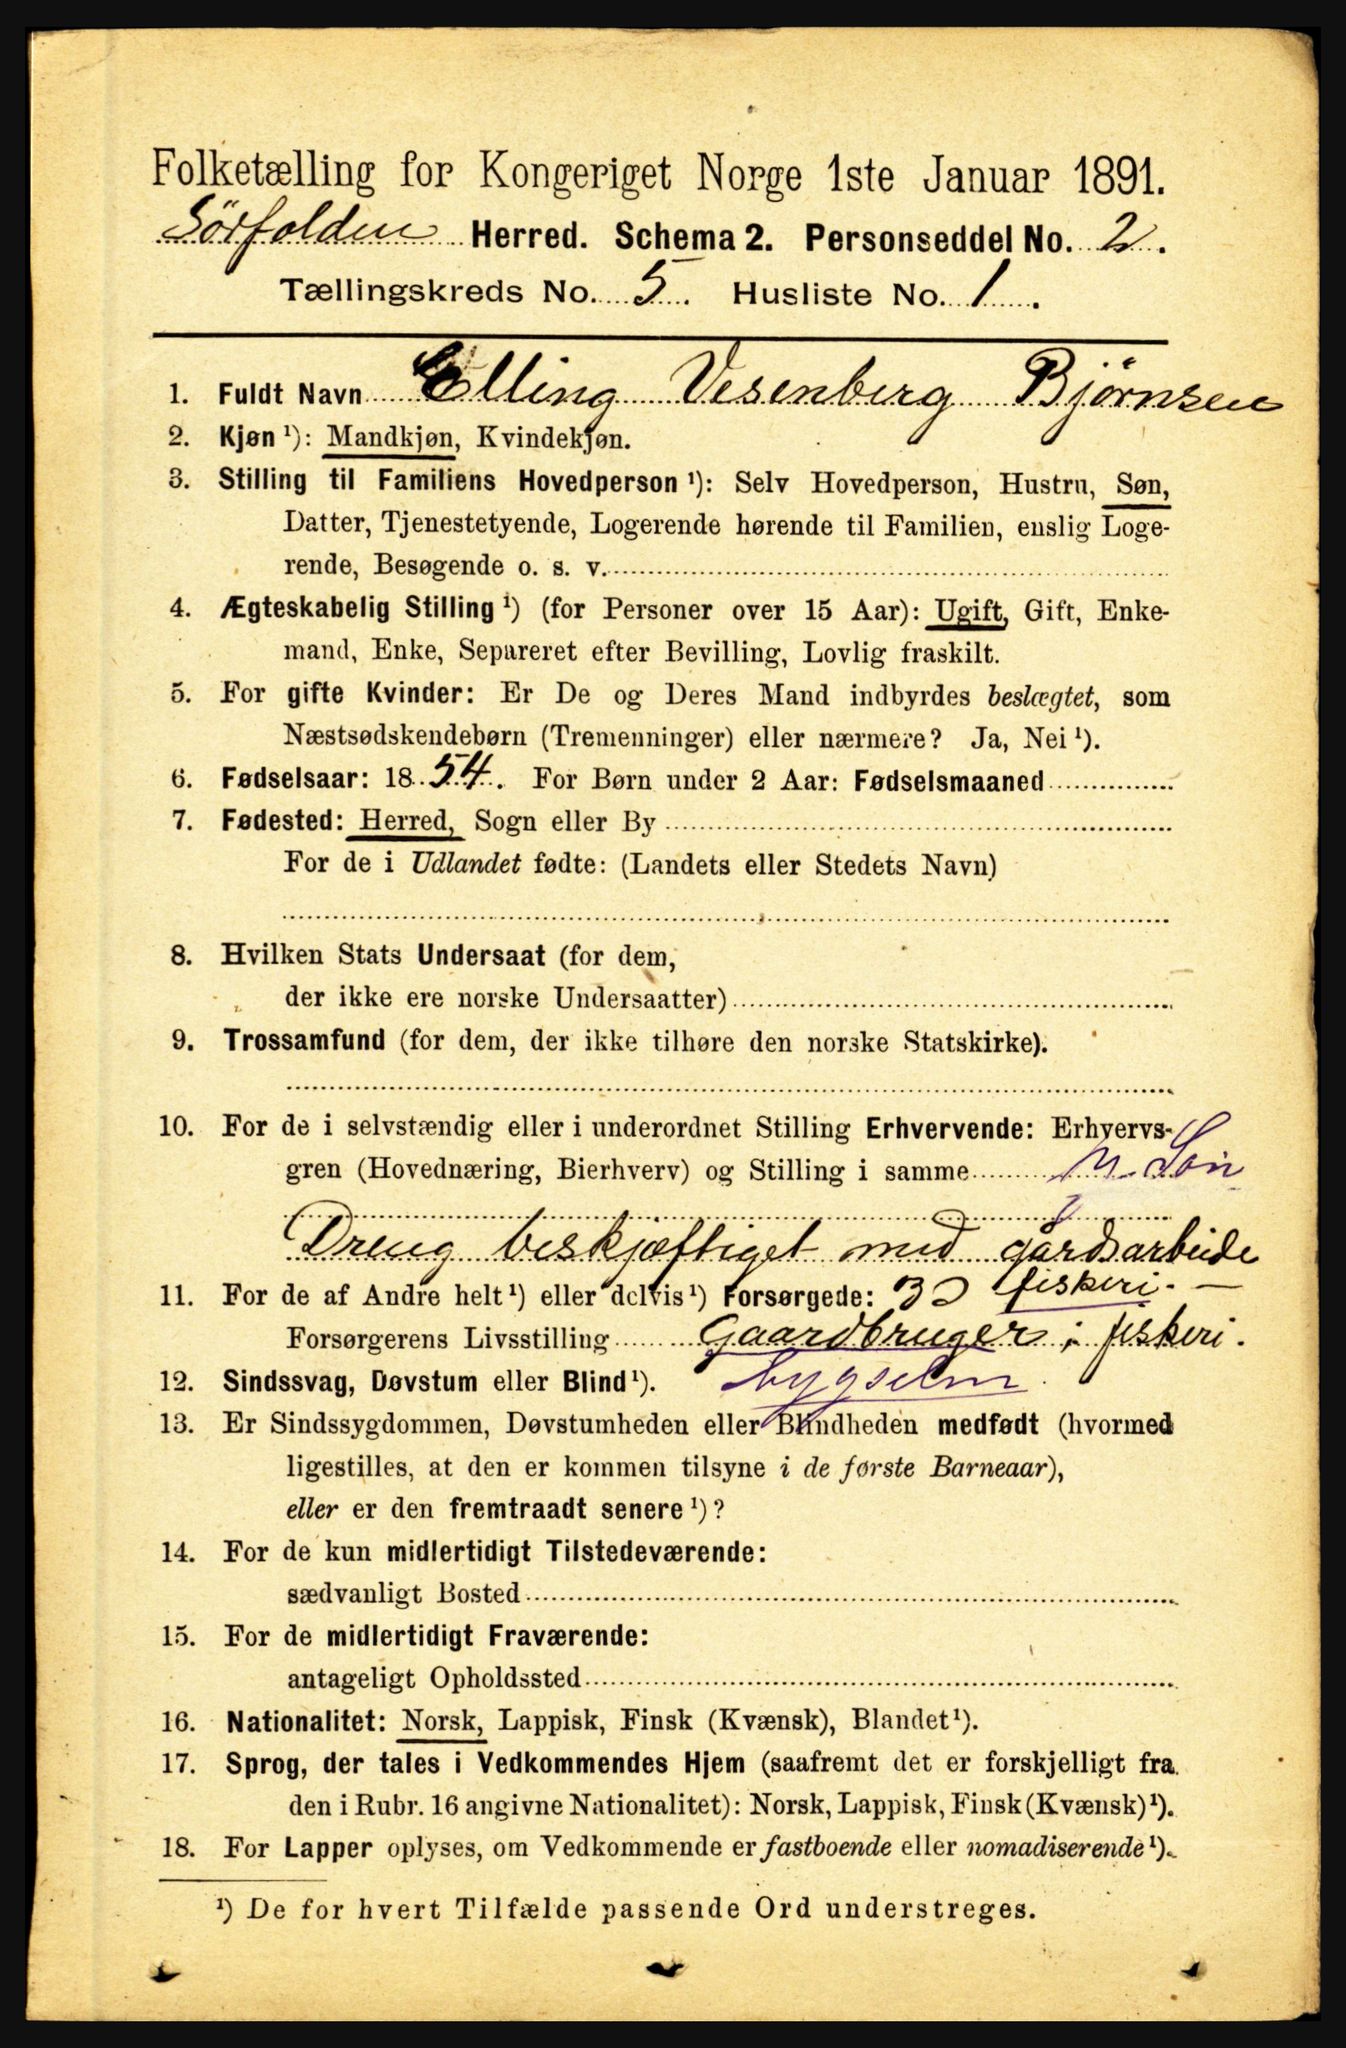 Folketælling for Kongeriget Norge 1ste Januar 1891.
Sörfolden Herred. Schema 2. Personseddel No. 2.
Tællingskreds No. 5. Husliste No. 1.
1. Fuldt Navn Elling Vesenberg Bjørnsen
2. Kjøn ¹): Mandkjøn, Kvindekjøn.
3. Stilling til Familiens Hovedperson ¹): Selv Hovedperson, Hustru, Søn,
Datter, Tjenestetyende, Logerende hørende til Familien, enslig Loge-
rende, Besøgende o. s. v.
4. Ægteskabelig Stilling ¹) (for Personer over 15 Aar): Ugift, Gift, Enke-
mand, Enke, Separeret efter Bevilling, Lovlig fraskilt.
5. For gifte Kvinder: Er De og Deres Mand indbyrdes beslægtet, som
Næstsødskendebørn (Tremenninger) eller nærmere? Ja, Nei ¹).
6. Fødselsaar: 1854. For Børn under 2 Aar: Fødselsmaaned
7. Fødested: Herred, Sogn eller By
For de i Udlandet fødte: (Landets eller Stedets Navn)
8. Hvilken Stats Undersaat (for dem,
der ikke ere norske Undersaatter)
9. Trossamfund (for dem, der ikke tilhøre den norske Statskirke).
10. For de i selvstændig eller i underordnet Stilling Erhvervende: Erhvervs-
gren (Hovednæring, Bierhverv) og Stilling i samme Søn
Dreng beskjæftiget med gårdsarbeide
11. For de af Andre helt ¹) eller delvis ¹) Forsørgede: fiskeri. —
Forsørgerens Livsstilling Gaardbruger i fiskeri.
12. Sindssvag, Døvstum eller Blind ¹).
13. Er Sindssygdommen, Døvstumheden eller Blindheden medfødt (hvormed
ligestilles, at den er kommen tilsyne i de første Barneaar),
eller er den fremtraadt senere ¹)?
14. For de kun midlertidigt Tilstedeværende:
sædvanligt Bosted
15. For de midlertidigt Fraværende:
antageligt Opholdssted
16. Nationalitet: Norsk, Lappisk, Finsk (Kvænsk), Blandet ¹).
17. Sprog, der tales i Vedkommendes Hjem (saafremt det er forskjelligt fra
den i Rubr. 16 angivne Nationalitet): Norsk, Lappisk, Finsk (Kvænsk) ¹).
18. For Lapper oplyses, om Vedkommende er fastboende eller nomadiserende ¹).
¹) De for hvert Tilfælde passende Ord understreges.